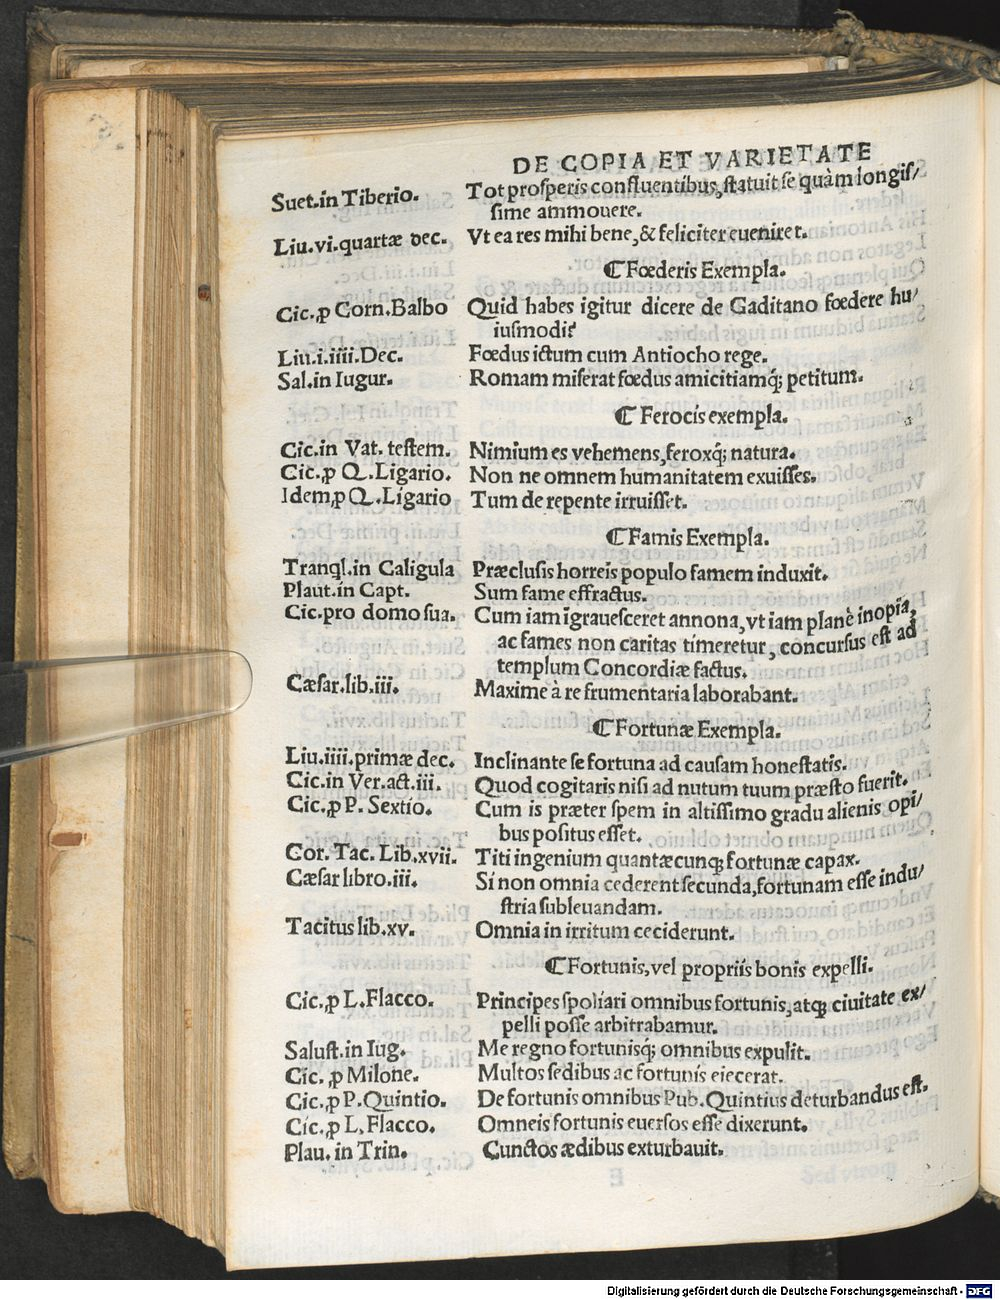 DE COPIA ET VARIETATE
Suet.in Tiberio. Tot prosperis confluentibus, statuit se quàm longis/
sime ammouere.
Liu.vi.quartæ dec. Vt ea res mihi bene, & feliciter eueniret.
¶Fœderis Exempla.
Cic.ꝓ Corn.Balbo Quid habes igitur dicere de Gaditano fœdere hu/
iusmodi?
Liu.i.iiii.Dec. Fœdus ictum cum Antiocho rege.
Sal.in Iugur. Romam miserat fœdus amicitiamq; petitum.
¶ Ferocis exempla.
Cic.in Vat. testem. Nimium es vehemens, feroxq; natura.
Cic.ꝓ Q.Ligario. Non ne omnem humanitatem exuisses.
Idem,ꝓ Q.Ligario Tum de repente irruisset.
¶Famis Exempla.
Tranql.in Caligula Præclusis horreis populo famem induxit.
Plaut.in Capt. Sum fame effractus.
Cic.pro domo sua. Cum iam igrauesceret annona, vt iam planè inopia,
ac fames non caritas timeretur, concursus est ad
templum Concordiæ factus.
Cæsar.lib.iii. Maxime à re frumentaria laborabant.
¶Fortunæ Exempla.
Liu.iiii.primæ dec. Inclinante se fortuna ad causam honestatis.
Cic.in Ver.act.iii. Quod cogitaris nisi ad nutum tuum præsto fuerit.
Cic.ꝓ P. Sextio. Cum is præter spem in altissimo gradu alienis opi/
bus positus esset.
Cor. Tac. Lib.xvii. Titi ingenium quantæcunqꝫ fortunæ capax.
Cæsar libro.iii. Si non omnia cederent secunda, fortunam esse indu/
stria subleuandam.
Tacitus lib.xv. Omnia in irritum ceciderunt.
¶Fortunis, vel propriis bonis expelli.
Cic.ꝓ L.Flacco. Principes spoliari omnibus fortunis, atqꝫ ciuitate ex/
pelli posse arbitrabamur.
Salust.in Iug. Me regno fortunisq; omnibus expulit.
Cic. ꝓ Milone. Multos sedibus ac fortunis eiecerat.
Cic.ꝓ P.Quintio. De fortunis omnibus Pub.Quintius deturbandus est.
Cic.ꝓ L.Flacco. Omneis fortunis euersos esse dixerunt.
Plau. in Trin. Cunctos ædibus exturbauit.
Digitalisierung gefördert durch die Deutsche Forschungsgemeinschaft - DFG